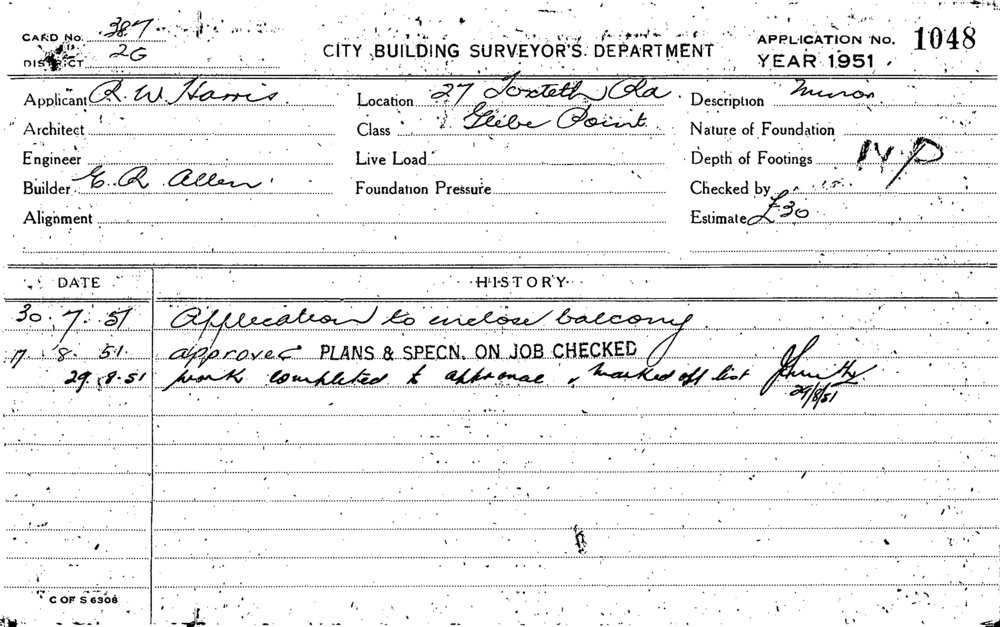 CARD No. 387
DISTRICT 2G
CITY BUILDING SURVEYOR'S DEPARTMENT
APPLICATION No. 1048
YEAR 1951
Applicant R. W. Harris Location 27 Toxteth Rd Description Minor
Architect Class Glebe Point Nature of Foundation
Engineer Live Load Depth of Footings
Builder E. R. Allen Foundation Pressure Checked by
Alignment Estimate £30
DATE HISTORY
30. 7. 51 Application to enclose balcony
17. 8. 51. approved PLANS & SPECN. ON JOB CHECKED
29. 8. 51 work completed to approval & marked off list
29/8/51
C OF S 6308